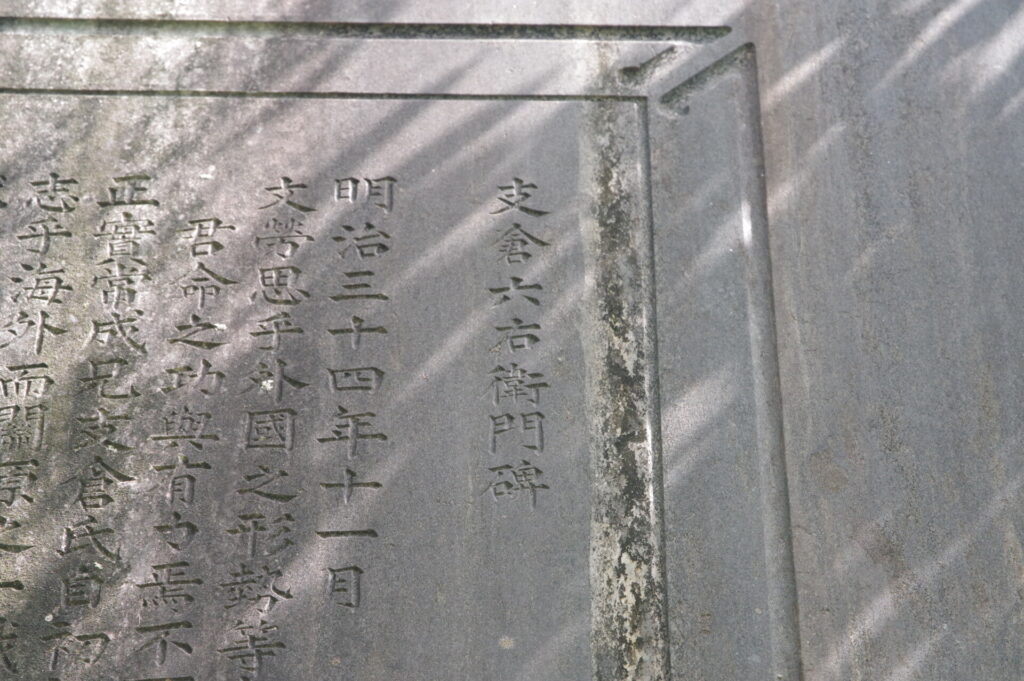 支倉六右衛門碑
明治三十四年十一月
文勞思乎外國之形勢等
君命之功與有力焉不
正實常成兄支倉氏自
志乎海外而關原之